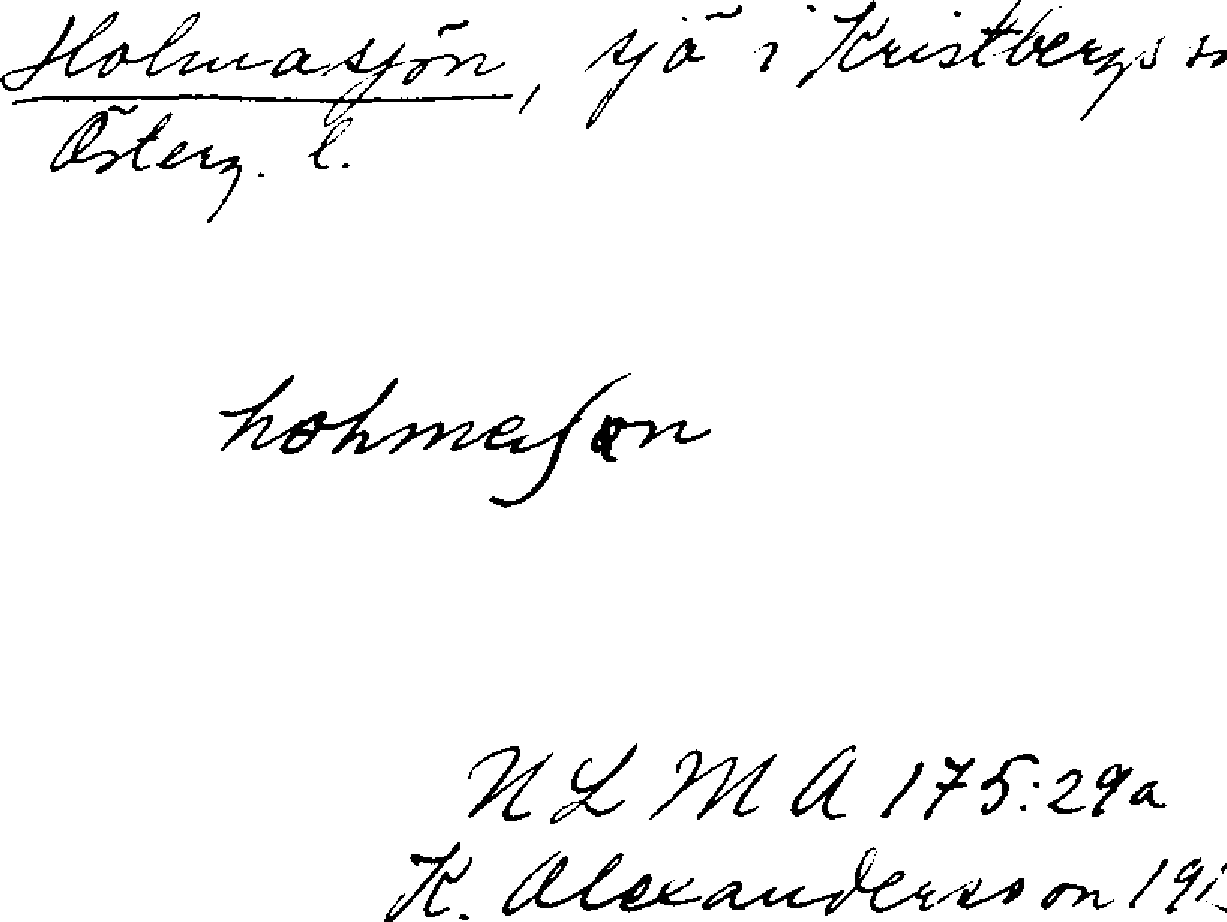 Holmasjön, sjö i Kristbergs sn
Österg. l.
NLM A 175:29a
K. Alexanderson